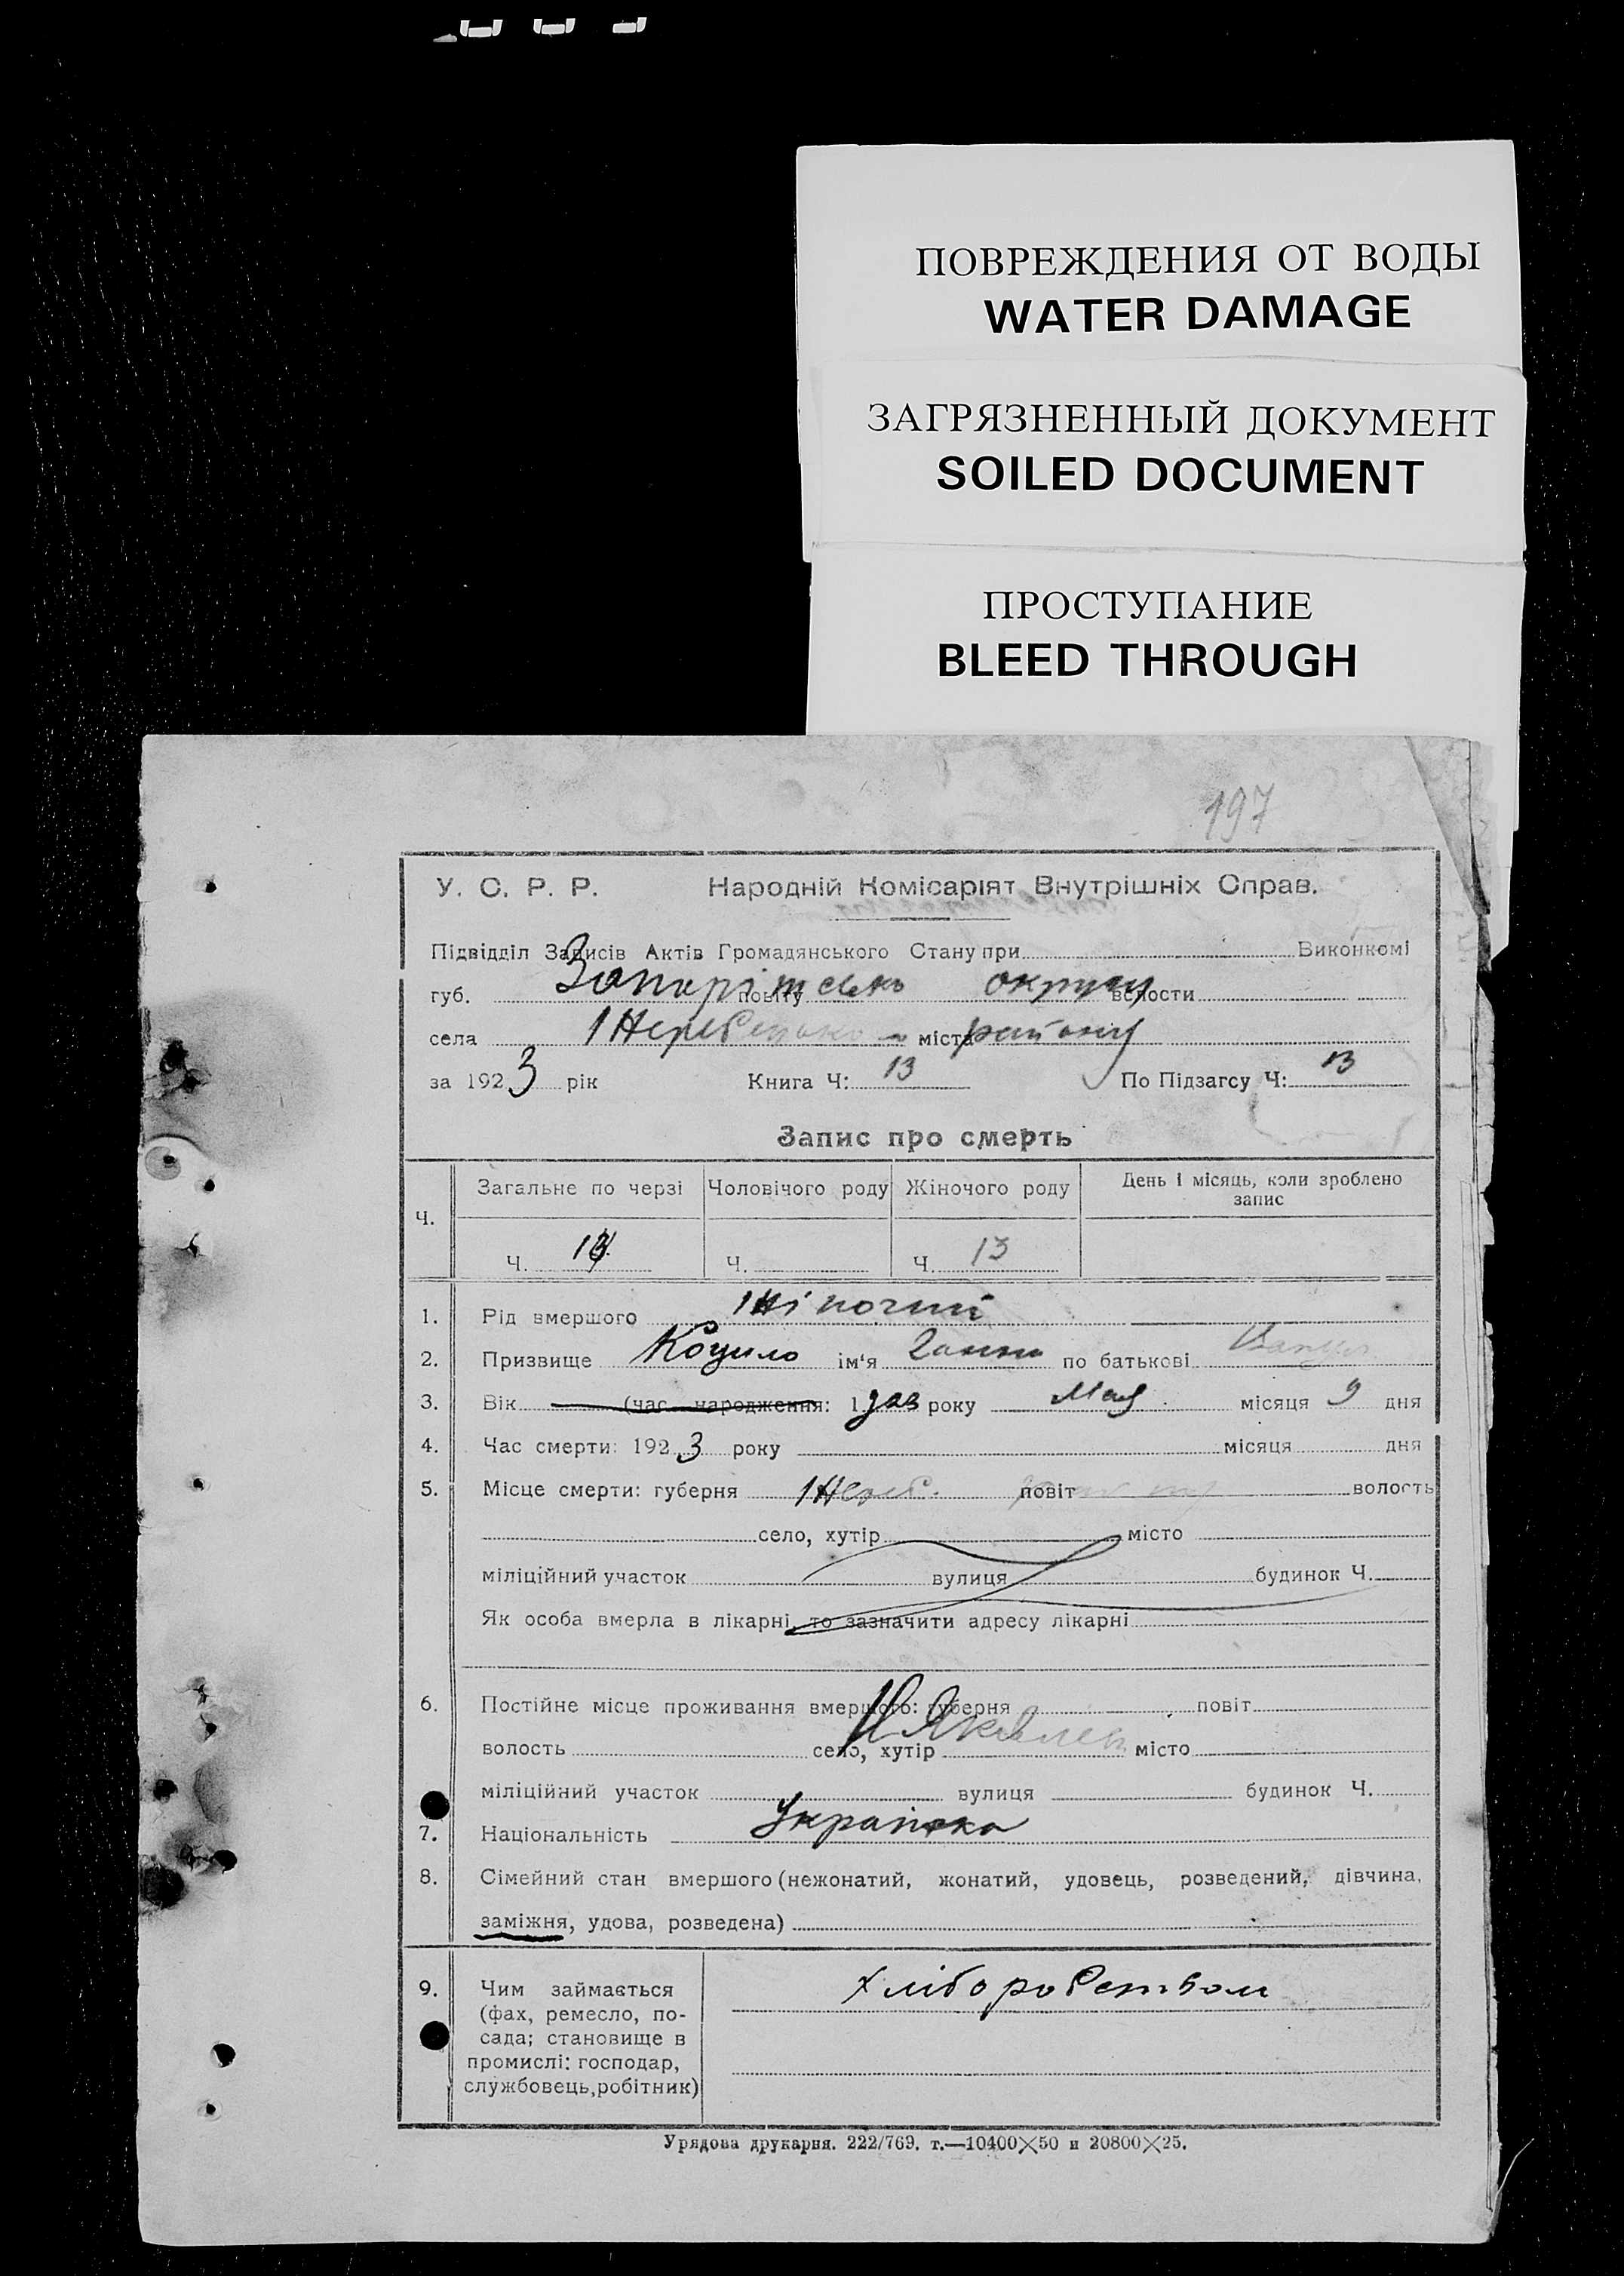 ПОВРЕЖДЕНИЯ ОТ ВОДЫ
WATER DAMAGE
ЗАГРЯЗНЕННЫЙ ДОКУМЕНТ
SOILED DOCUMENT
ПРОСТУПАНИЕ
BLEED THROUGH
197
У. С. Р. Р. Народній Комісаріят Внутрішніх Справ.
Підвідділ Записів Актів Громадянського Стану при Виконкомі
губ. повіту округу волости
села міста району
за 1923 рік Книга Ч: 13 По Підзагсу Ч: 13
Запис про смерть
Ч. Загальне по черзі Чоловічого роду Жіночого роду День і місяць, коли зроблено
запис
Ч. 13 Ч. Ч. 13
1. Рід вмершого Жіночий
2. Призвище Коцило ім'я Ганна по батькові
3. Вік (час народження: 1923 року Мая місяця 9 дня
4. Час смерти: 1923 року місяця дня
5. Місце смерти: губерня Жереб. повіт волость
село, хутір місто
міліційний участок вулиця будинок Ч.
Як особа вмерла в лікарні, то зазначити адресу лікарні
6. Постійне місце проживання вмершого: губерня повіт
волость село, хутір місто
міліційний участок вулиця будинок Ч.
7. Національність Українка
8. Сімейний стан вмершого (нежонатий, жонатий, удовець, розведений, дівчина,
заміжня, удова, розведена)
9. Чим займається хліборобством
(фах, ремесло, по-
сада; становище в
промислі: господар,
службовець, робітник)
Урядова друкарня. 222/769. т.—10400×50 и 20800×25.